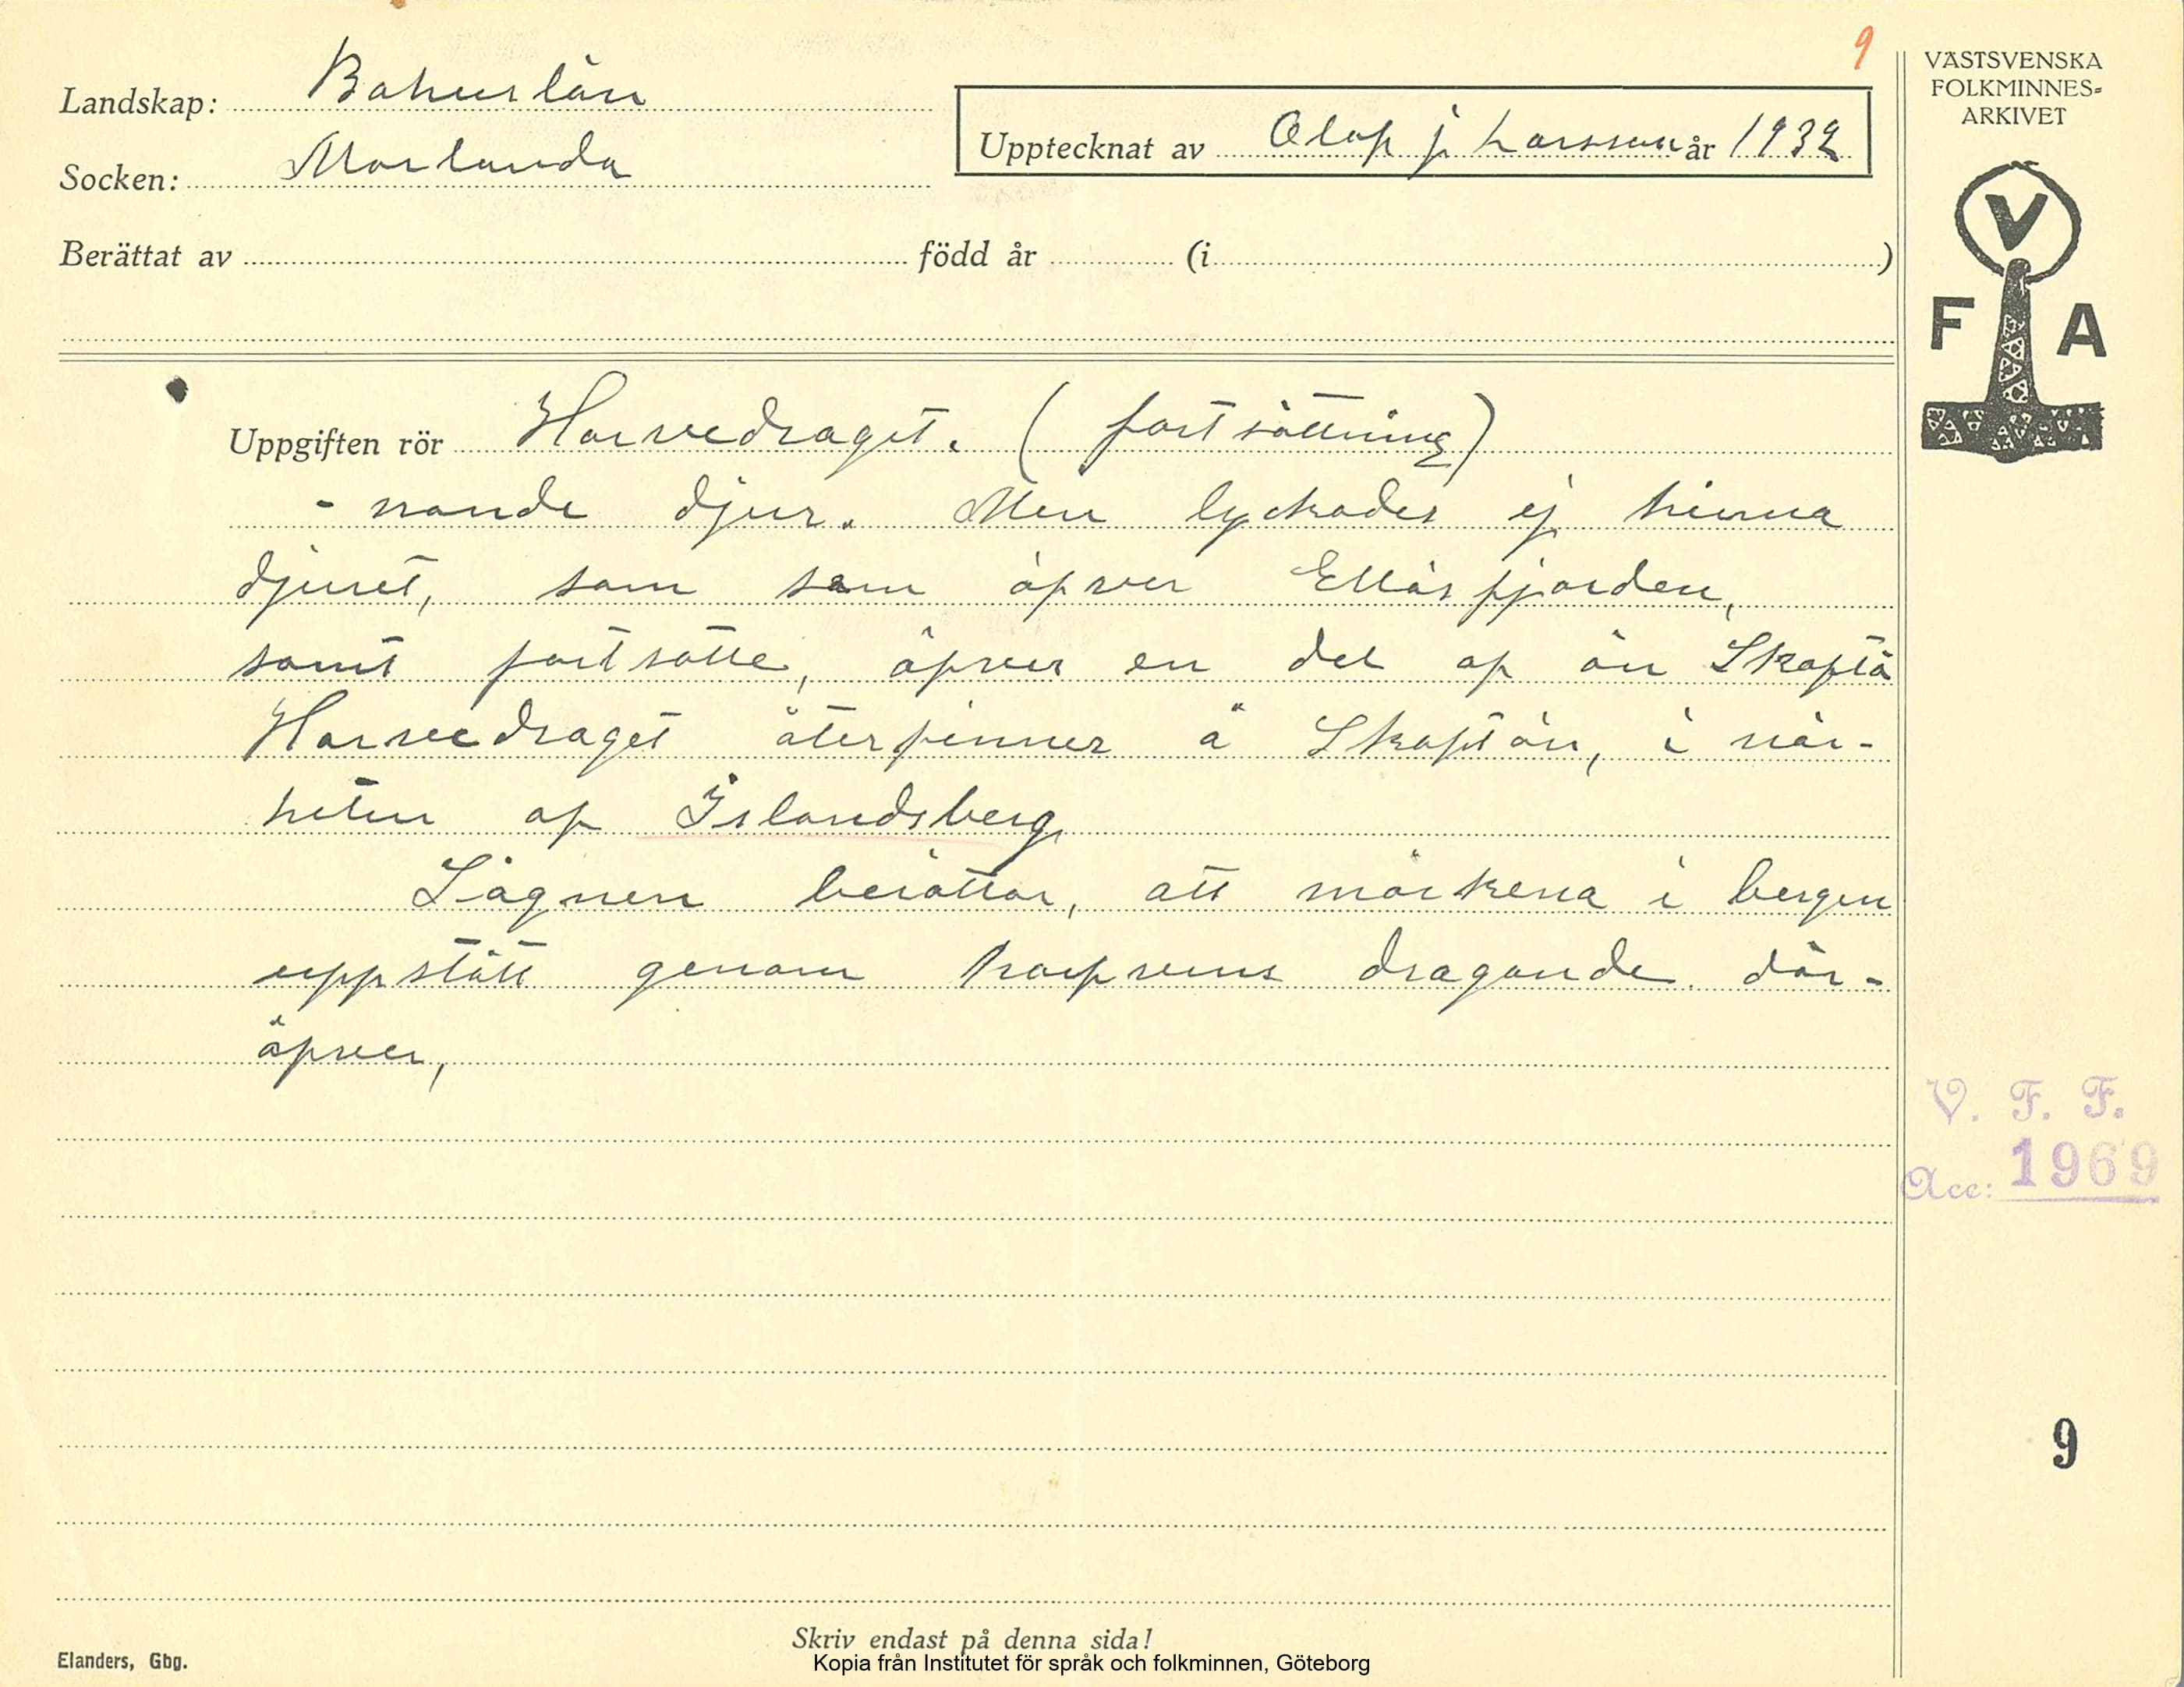 9
VÄSTSVENSKA
FOLKMINNES-
ARKIVET
Landskap: Bohuslän
Socken: Morlanda
Upptecknat av Olof j Larsson år 1932
Berättat av född år (i )
V
F A
Uppgiften rör Harvedraget. (fortsättning)
- nande djur. Men lyckades ej hinna
djuret, som sam öfver Ellösfjorden,
samt fortsatte, öfver en del af ön Skaftö
Harvedraget återfinner å Skaftön, i när-
heten af Islandsberg,
Sägnen berättar, att märkena i bergen
uppstått genom harfvens dragande där-
öfver,
V. F. F.
Acc: 1969
9
Skriv endast på denna sida!
Elanders, Gbg.
Kopia från Institutet för språk och folkminnen, Göteborg